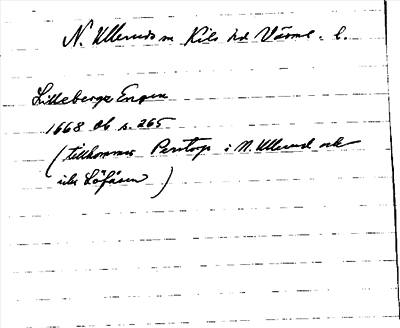 N. Ulleruds sn Kils hd Värml. l.
Lilleberge Engen
1668 Jb s. 265
(tillkommer Perstorp i N. Ullerud och
icke Löfåsen)